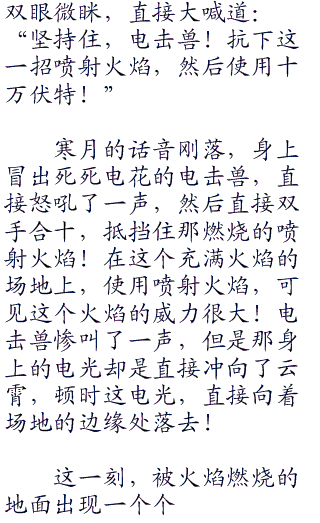 双眼微眯，直接大喊道：
“坚持住，电击兽！抗下这
一招喷射火焰，然后使用十
万伏特！”
寒月的话音刚落，身上
冒出死死电花的电击兽，直
接怒吼了一声，然后直接双
手合十，抵挡住那燃烧的喷
射火焰！在这个充满火焰的
场地上，使用喷射火焰，可
见这个火焰的威力很大！电
击兽惨叫了一声，但是那身
上的电光却是直接冲向了云
霄，顿时这电光，直接向着
场地的边缘处落去！
这一刻，被火焰燃烧的
地面出现一个个